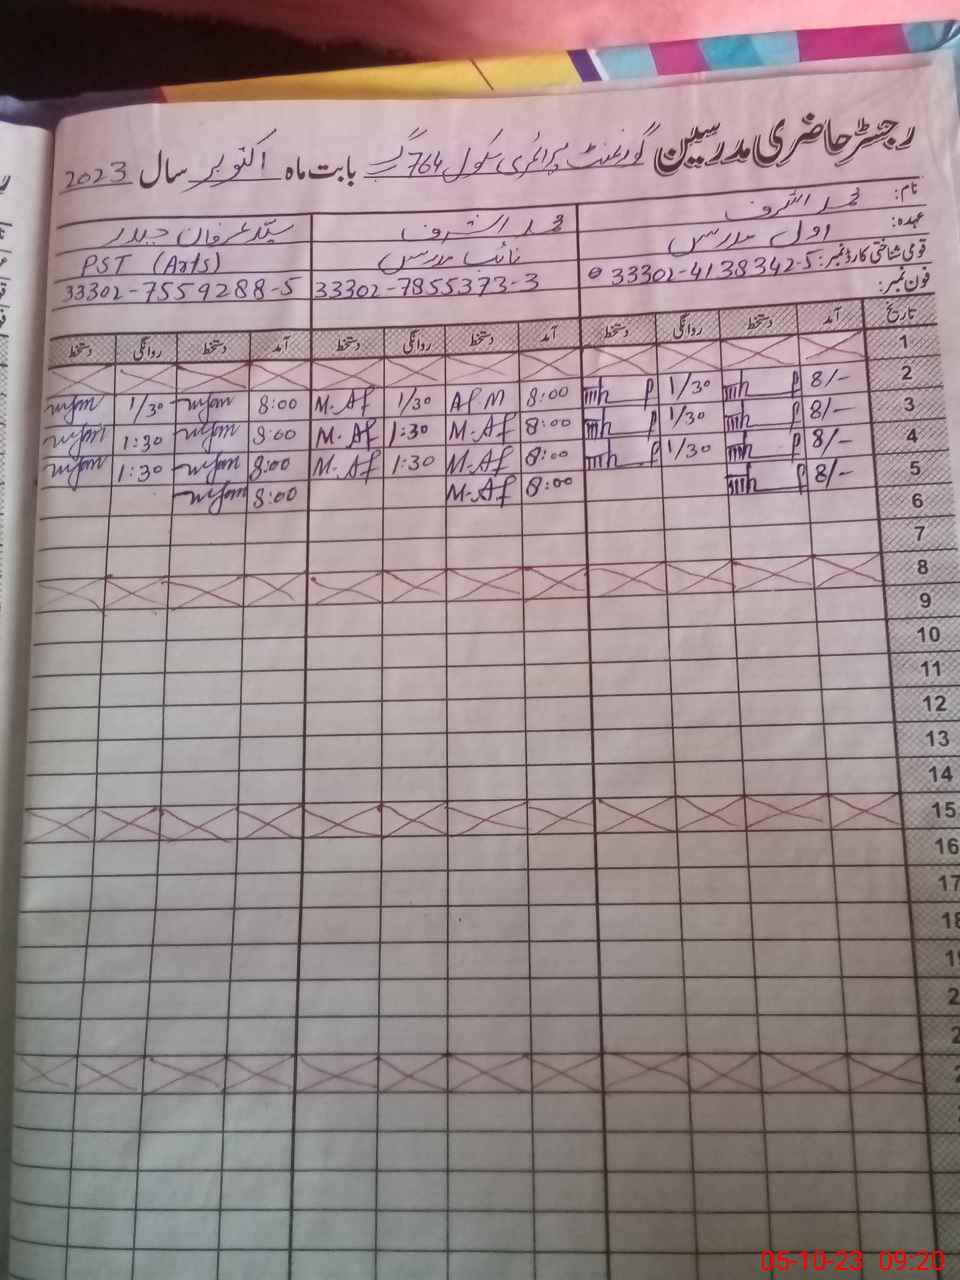 رجسٹر حاضری مدرسین گورنمنٹ پرائمری سکول 764 گ ب بابت ماہ اکتوبر سال 2023
نام: محمد اشرف محمد اشرف سید عرفان حیدر
عہدہ: اول مدرس نائب مدرس PST (Arts)
قومی شناختی کارڈ نمبر: 33302-4138342-5 33302-7855373-3 33302-7559288-5
فون نمبر:
تاریخ آمد دستخط روانگی دستخط آمد دستخط روانگی دستخط آمد دستخط روانگی دستخط
1
2 8/- 1/30 8:00 Af M 1/30 M. Af 8:00 1/30
3 8/- 1/30 8:00 M. Af 1:30 M. Af 8:00 1:30
4 8/- 1/30 8:00 M. Af 1:30 M. Af 8:00 1:30
5 8/- 8:00 M. Af 8:00
6
7
8
9
10
11
12
13
14
15
16
17
18
05-10-23 09:20